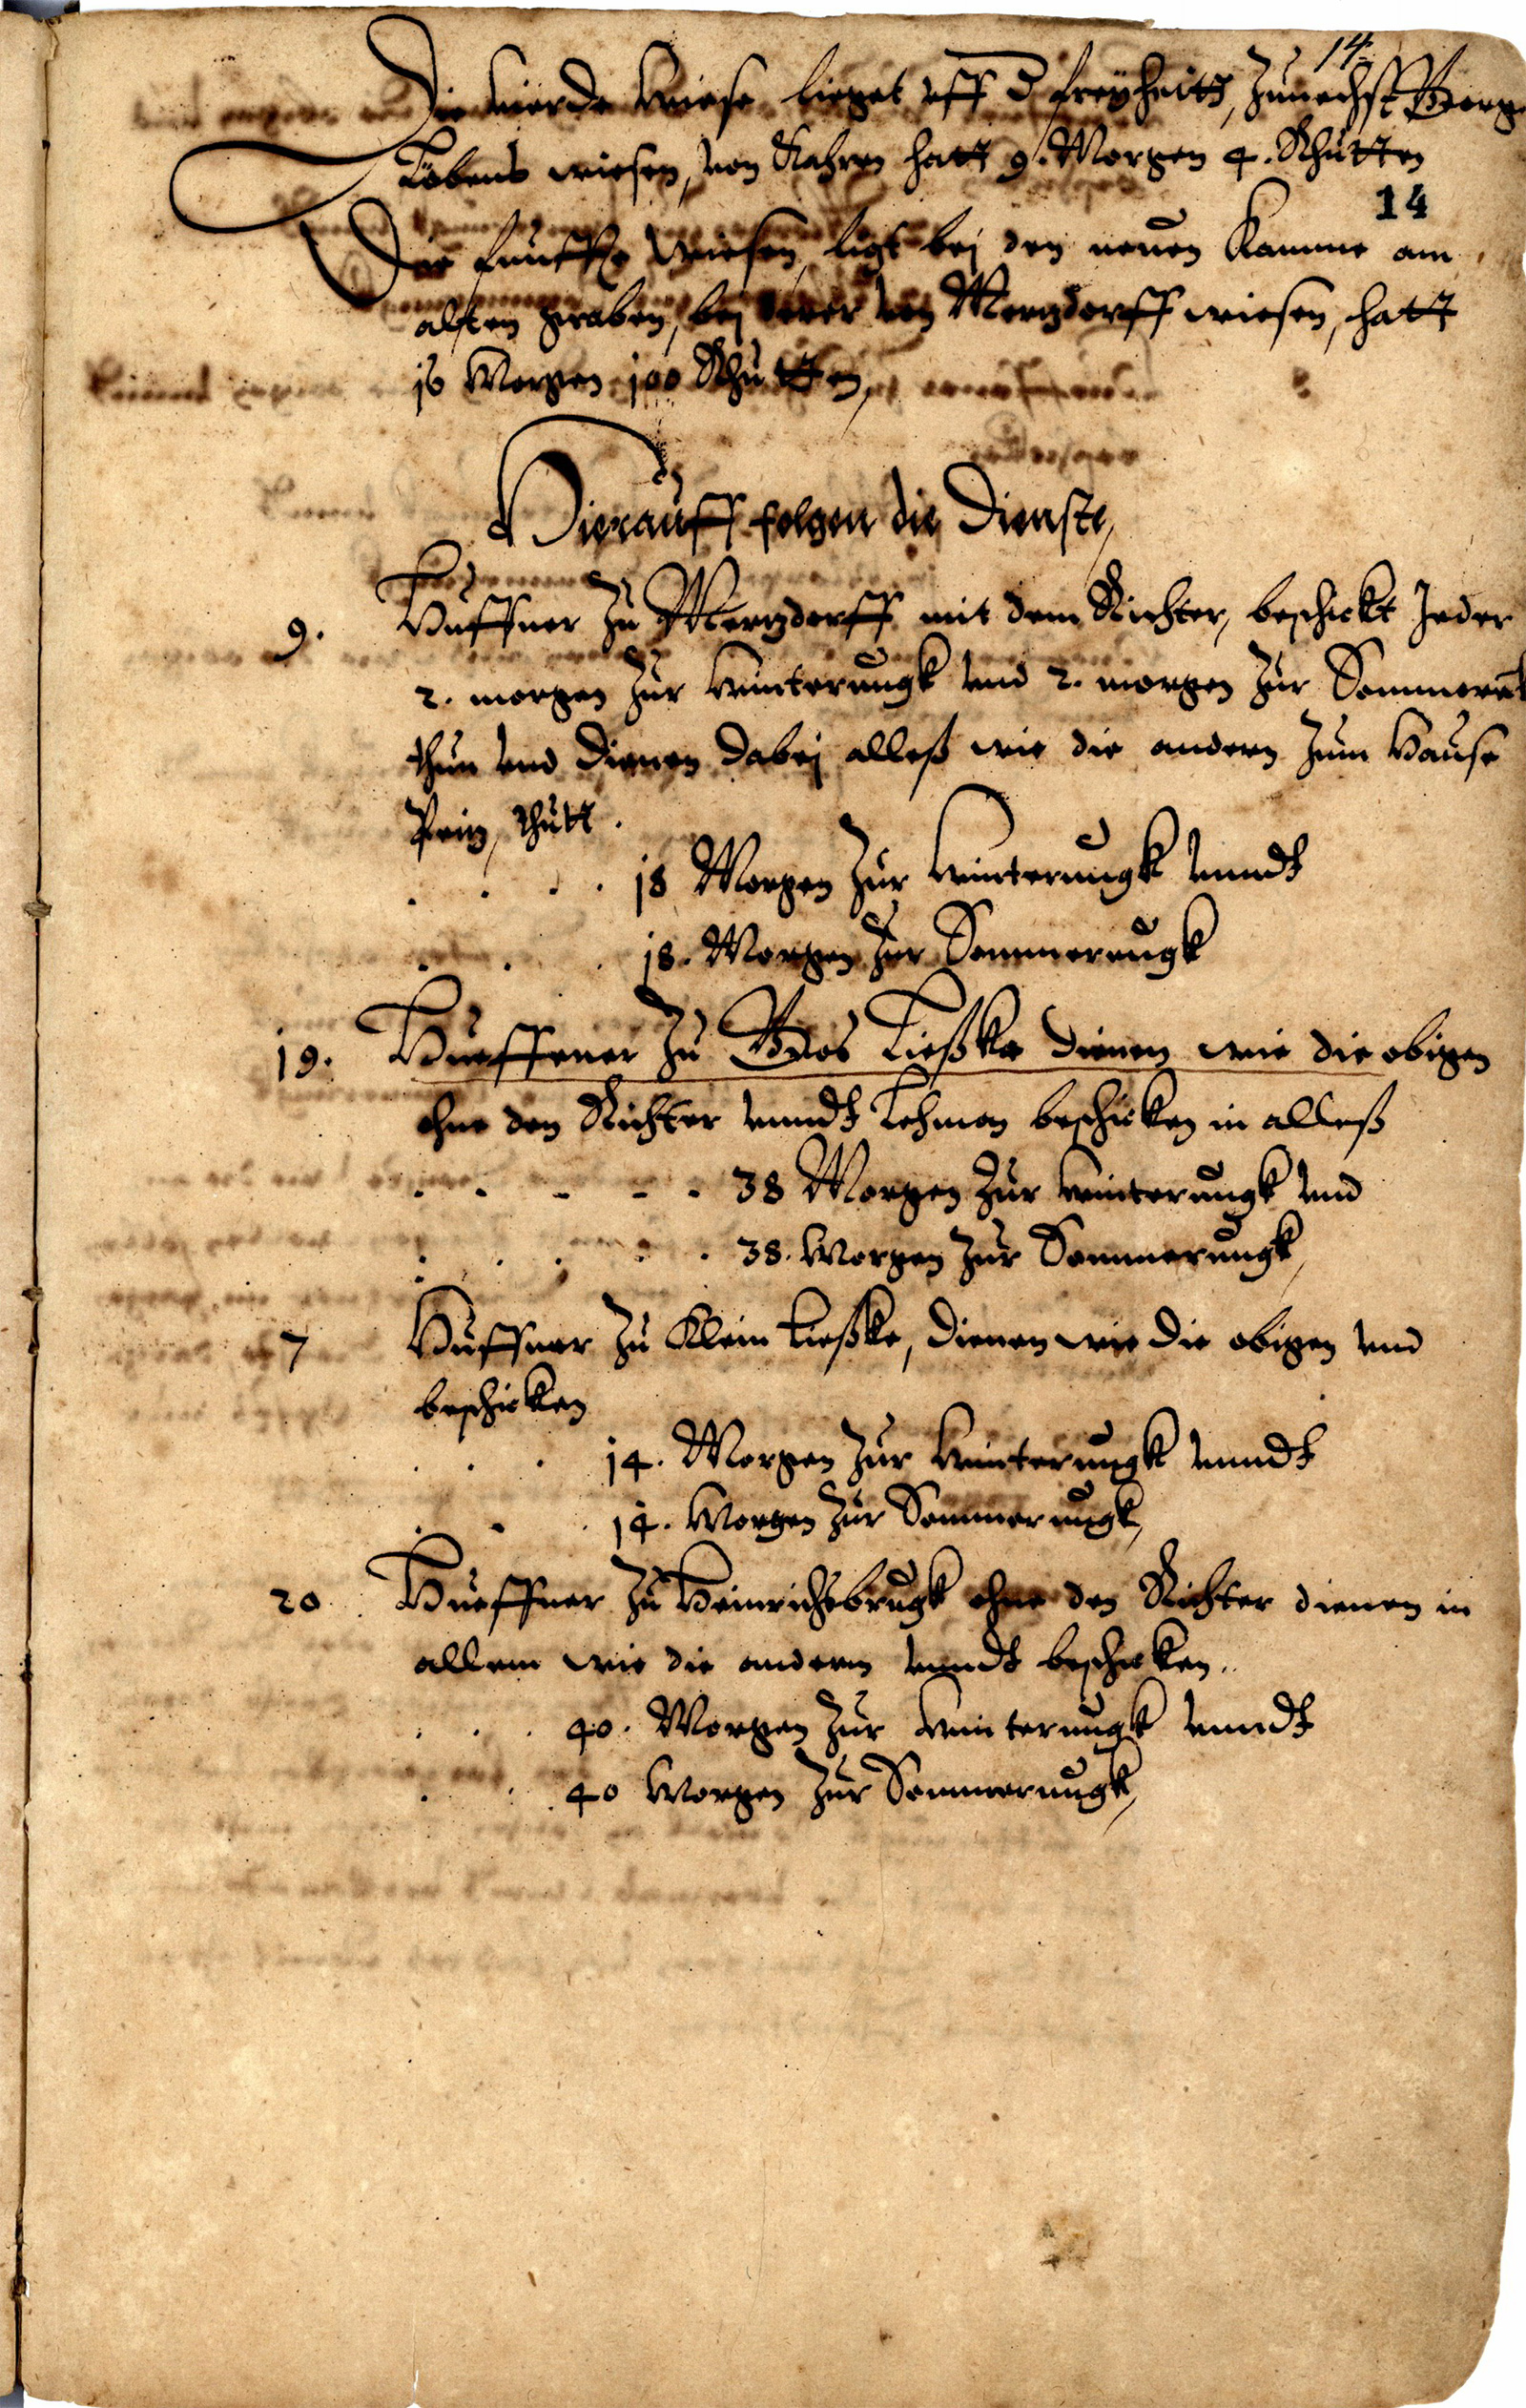 14
Die vierde Wiese lieget uff d freyheitt, zunechst Georg
Löbens wiesen, von Kahren hatt 9. Morgen 4. Rhutten
14
Die funffte Wiesen, ligt bej den neuen Kamme am
alten graben, bej derer von Mertzdorff wiesen, hatt
16 Morgen 100 Rhutten,
Hierauff folgen die Dienste,
9. Huffner zu Mertzdorff mit dem Richter, beschickt Jeder
2. morgen zur Winterungk und 2. morgen zur Sommeru
thun und dienen dabej alleß wie die andern zum Hause
Peitz, thutt.
18 Morgen zur Winterungk unndt
18. Morgen zur Sommerungk
19. Hueffener zu Gros Ließke dienen wie die obigen
ohne den Richter unndt Lehman beschicken in alleß
38 Morgen zur Winterungk und
38. Morgen zur Sommerungk,
7 Huffner zu Klein Ließke, dienen wie die obigen und
beschicken
14. Morgen zur Winterungk unndt
14. Morgen zur Sommerungk,
20 Hueffner zu Heinrichsbrugk ohne den Richter dienen in
allem wie die andern unndt beschicken..
40. Morgen zur Winterungk unndt
40 Morgen zur Sommerungk,